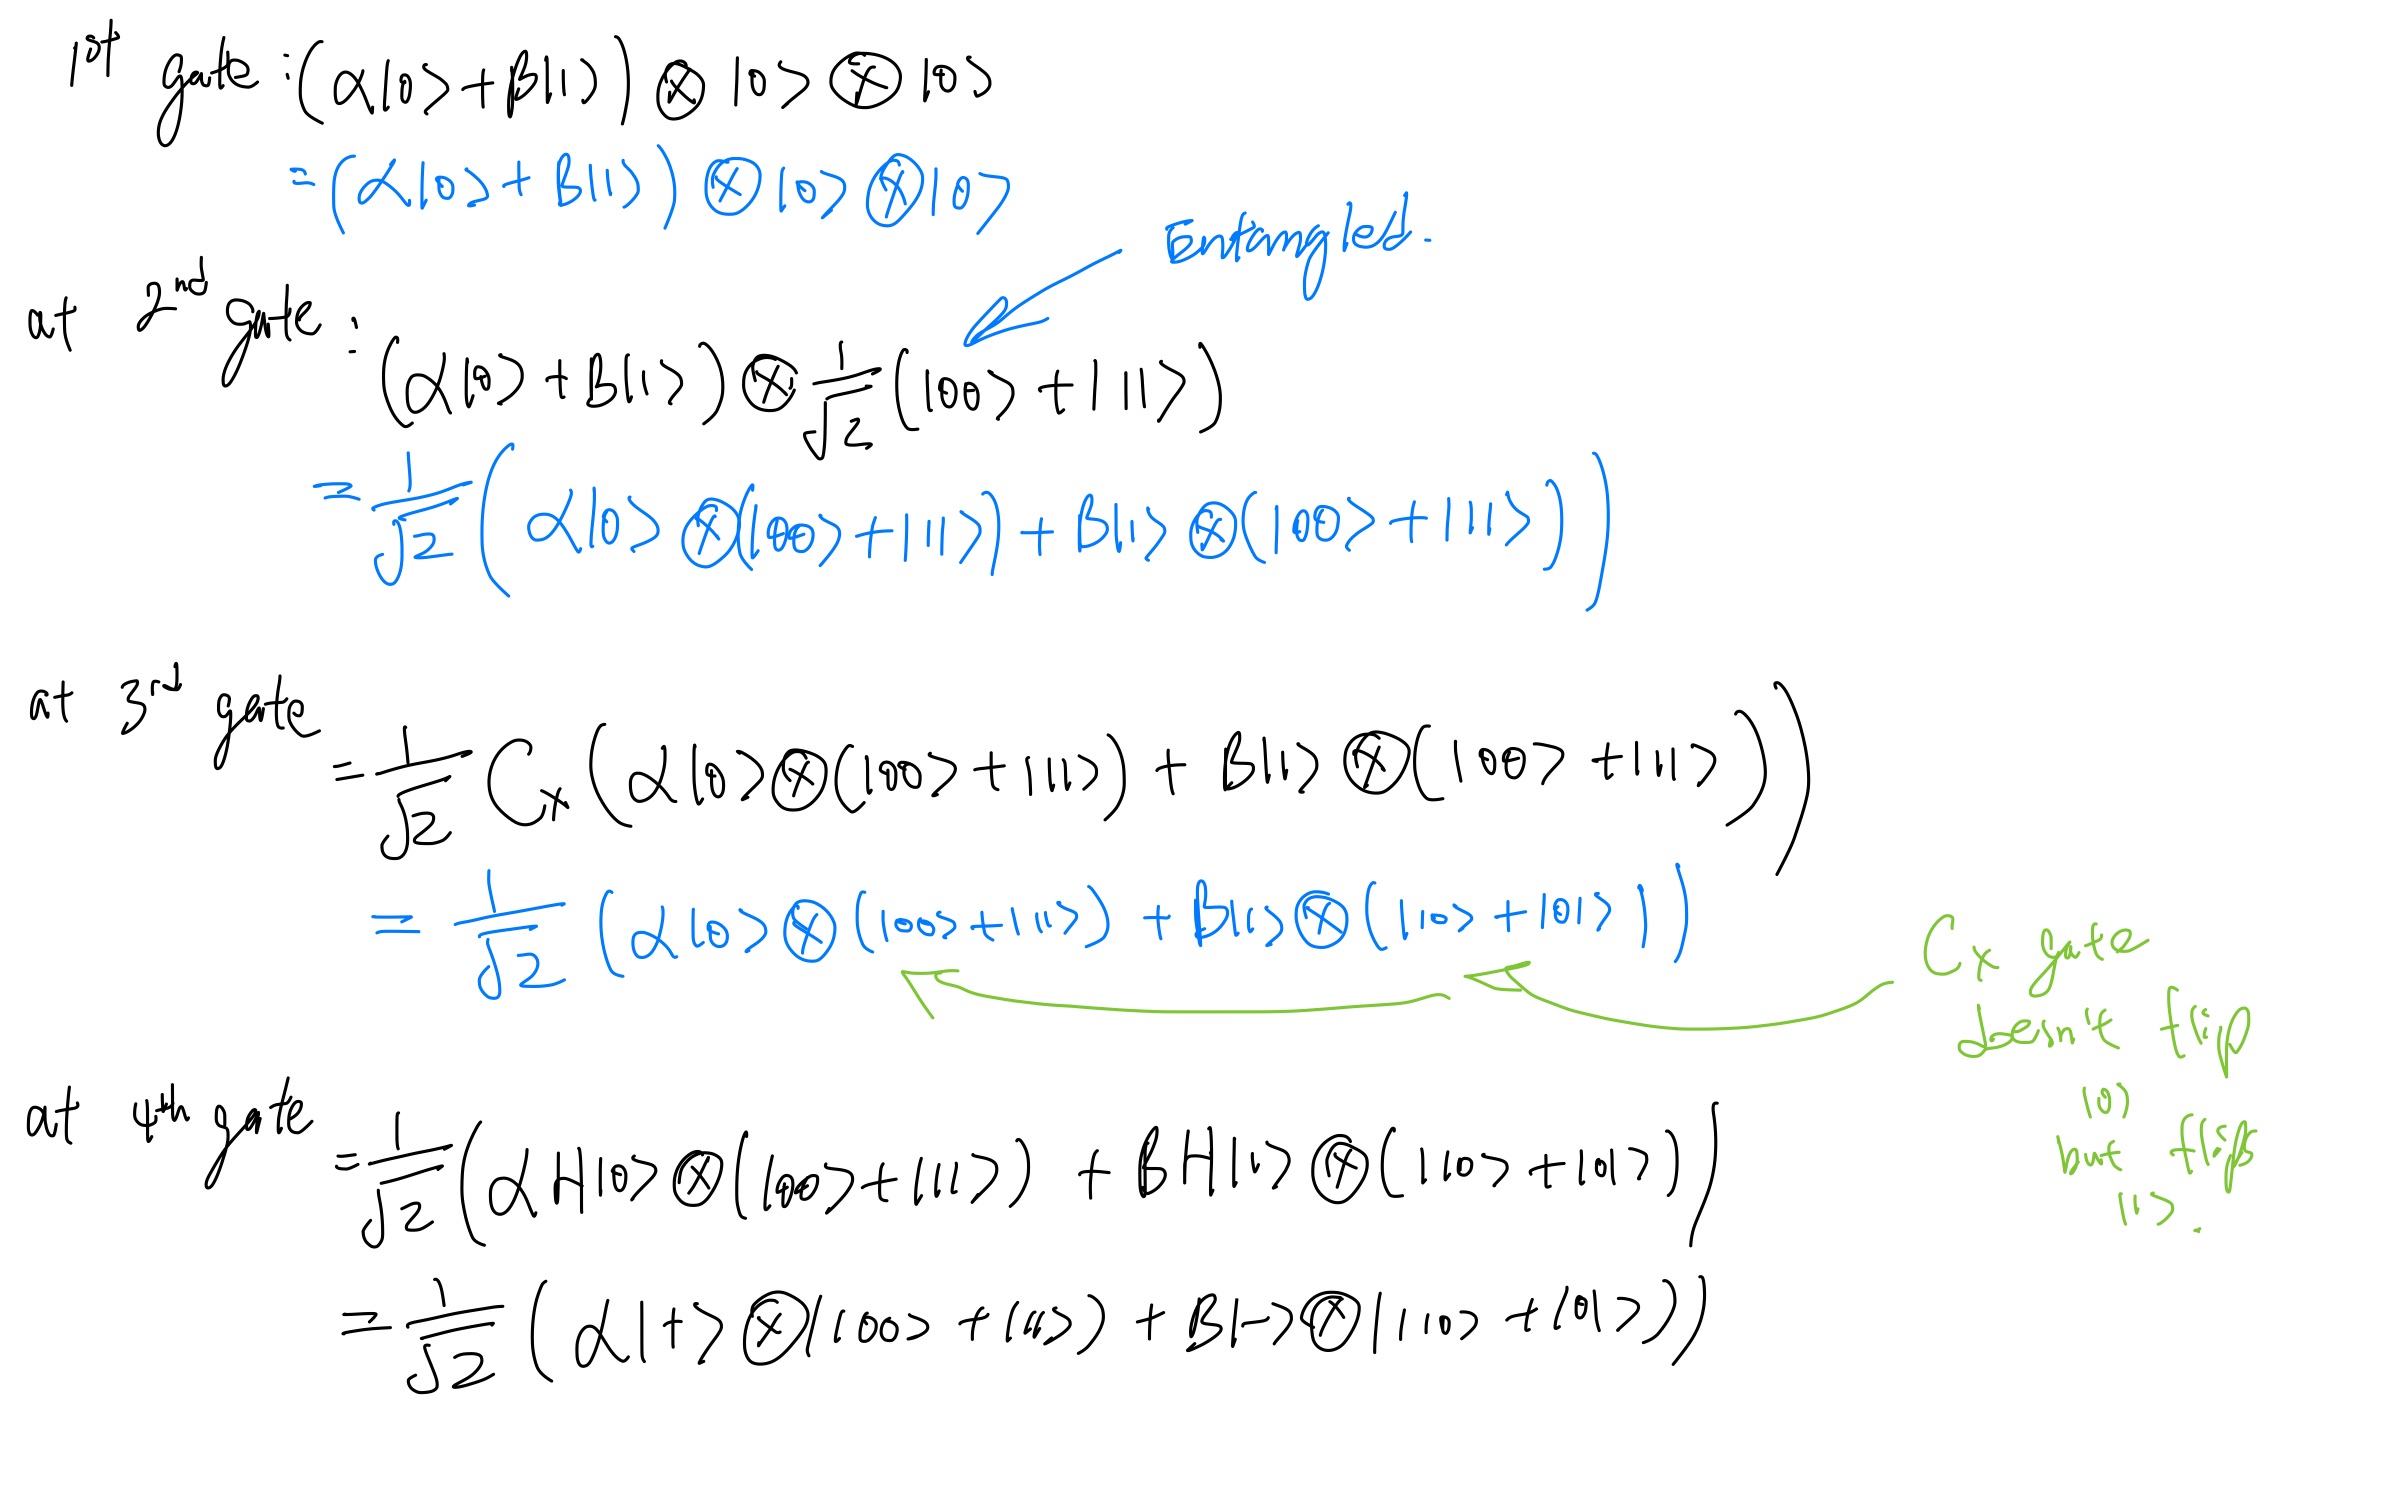 1st gate : (α|0> + B|1>) ⊗ |0> ⊗ |0>
= (α|0> + B|1>) ⊗ |0> ⊗ |0>
Entangled.
at 2nd gate : (α|0> + B|1>) ⊗ 1/√2 (|00> + |11>)
= 1/√2 (α|0> ⊗ (|00> + |11>) + B|1> ⊗ (|00> + |11>))
at 3rd gate = 1/√2 Cx (α|0> ⊗ (|00> + |11>) + B|1> ⊗ (|00> + |11>))
= 1/√2 (α|0> ⊗ (|00> + |11>) + B|1> ⊗ (|10> + |01>))
Cx gate
doesn't flip
|0>
but flips
|1>.
at 4th gate = 1/√2 (αH|0> ⊗ (|00> + |11>) + BH|1> ⊗ (|10> + |01>))
= 1/√2 (α|+> ⊗ (|00> + |11>) + B|-> ⊗ (|10> + |01>))